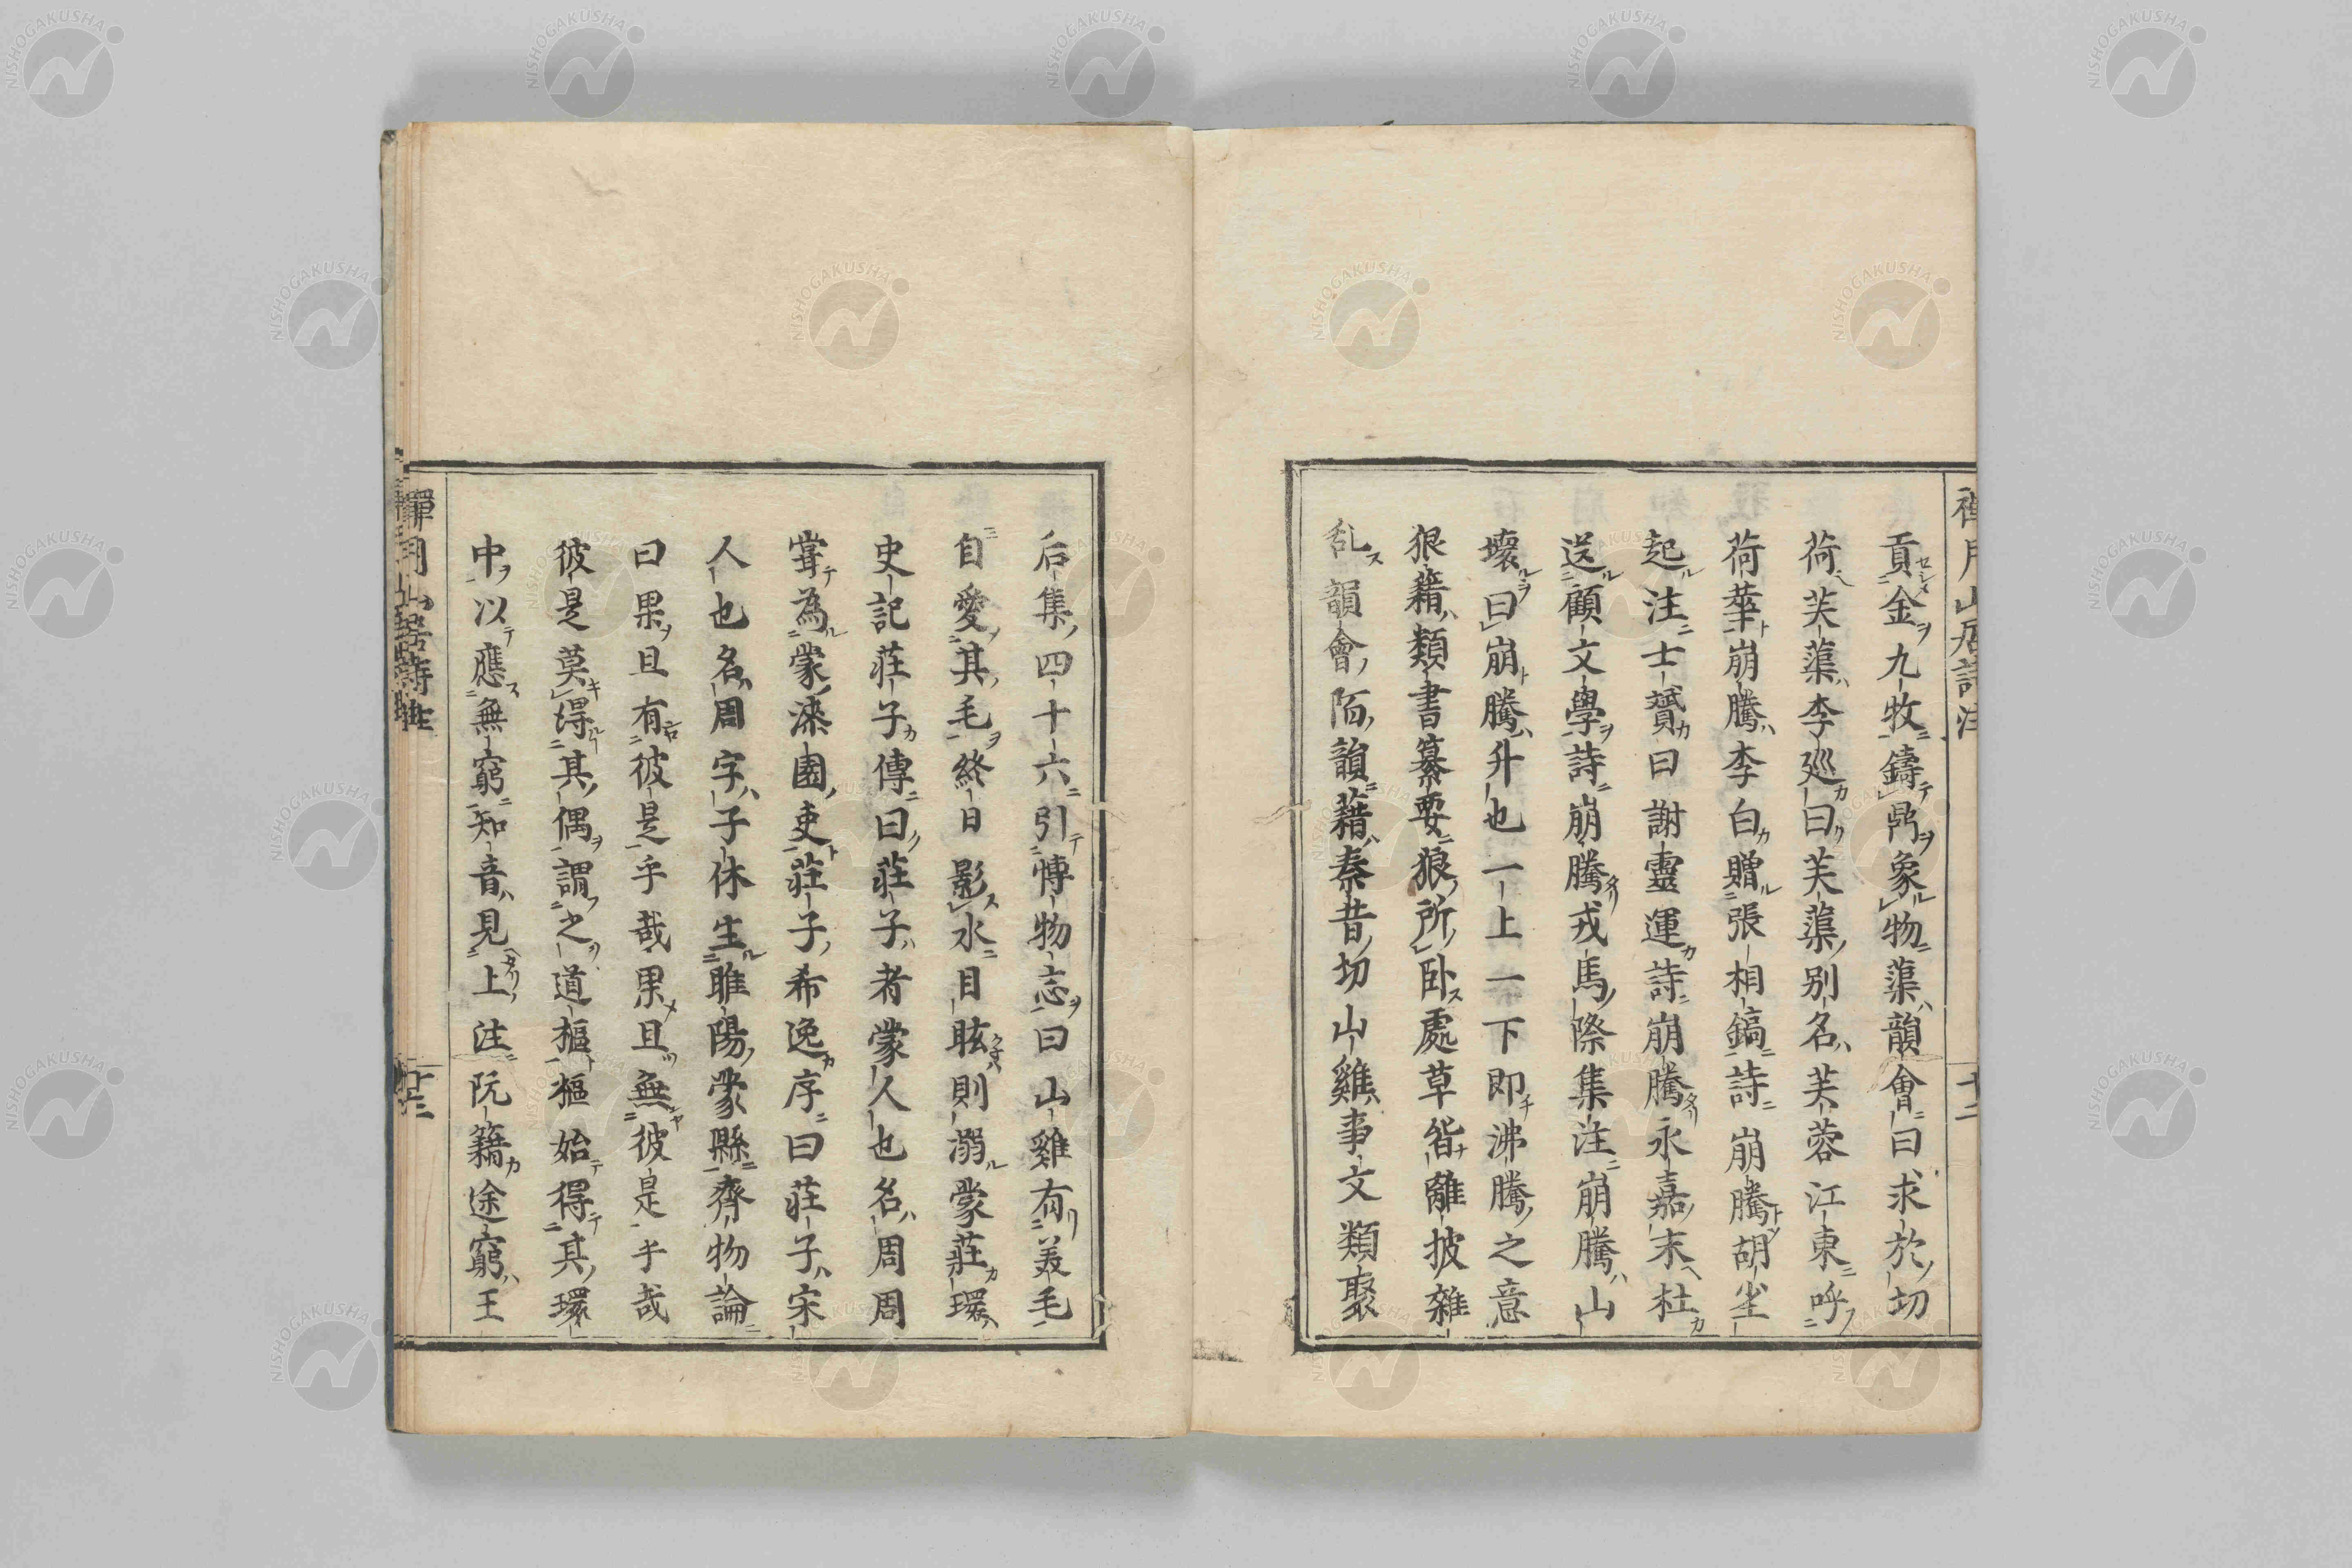 禅月山居詩注
十二
貢金九牧鑄鼎象物蕖韻會曰求於切
荷芙蕖李廵曰芙蕖別名芙蓉江東呼
荷華崩騰李白贈張相鎬詩崩騰胡坐
起注士贇曰謝靈運詩崩騰永嘉末杜
送顧文學詩崩騰戎馬際集注崩騰山
壞曰崩騰升也一上一下即沸騰之意
狼藉類書纂要狼所卧處草皆離披雜
乱韻會陌韻藉秦昔切山雞事文類聚
后集四十六引博物志曰山雞有美毛
自愛其毛終日影水目眩則溺蒙莊環
史記莊子傳曰莊子者蒙人也名周周
甞為蒙漆園吏莊子希逸序曰莊子宋
人也名周字子休生睢陽蒙縣齊物論
曰果且有彼是乎哉果且無彼是乎哉
彼是莫得其偶謂之道樞樞始得其環
中以應無窮知音見上注阮籍途窮王
禪月山居詩註
十三
NISHOGAKUSHA